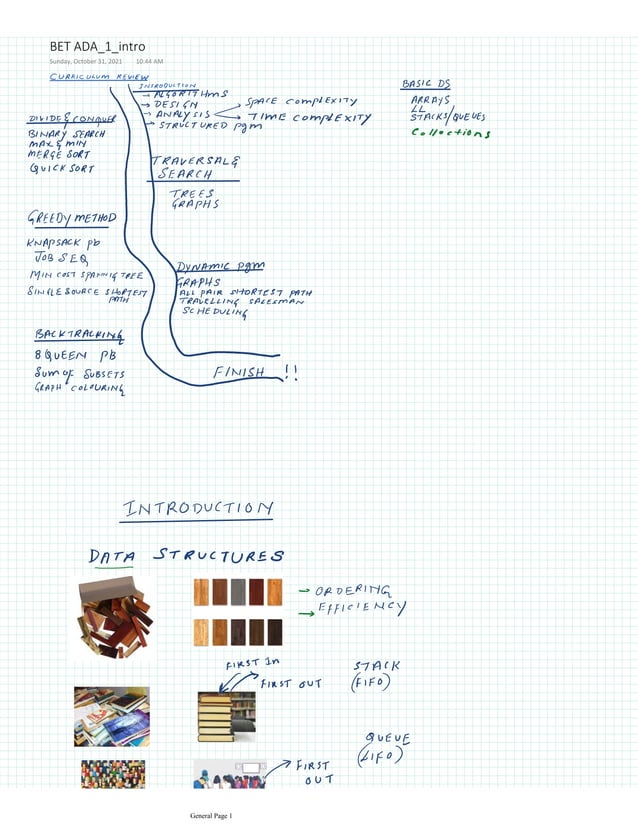 BET ADA_1_intro
Sunday, October 31, 2021 10:44 AM
CURRICULUM REVIEW
INTRODUCTION
→ ALGORITHMS
→ DESIGN
→ ANALYSIS
SPACE COMPLEXITY
TIME COMPLEXITY
→ STRUCTURED pgm
BASIC DS
ARRAYS
LL
STACKS/QUEUES
Collections
DIVIDE & CONQUER
BINARY SEARCH
MAX & MIN
MERGE SORT
QUICK SORT
TRAVERSAL &
SEARCH
TREES
GRAPHS
GREEDY METHOD
KNAPSACK pb
JOB SEQ
MIN COST SPANNIG TREE
SINGLE SOURCE SHORTEST
PATH
DYNAMIC pgm
GRAPHS
ALL PAIR SHORTEST PATH
TRAVELLING SALESMAN
SCHEDULING
BACKTRACKING
8 QUEEN PB
SUM OF SUBSETS
GRAPH COLOURING
FINISH !!
INTRODUCTION
DATA STRUCTURES
→ ORDERING
→ EFFICIENCY
FIRST In
FIRST OUT
STACK
(FIFO)
QUEUE
(LIFO)
FIRST
OUT
General Page 1